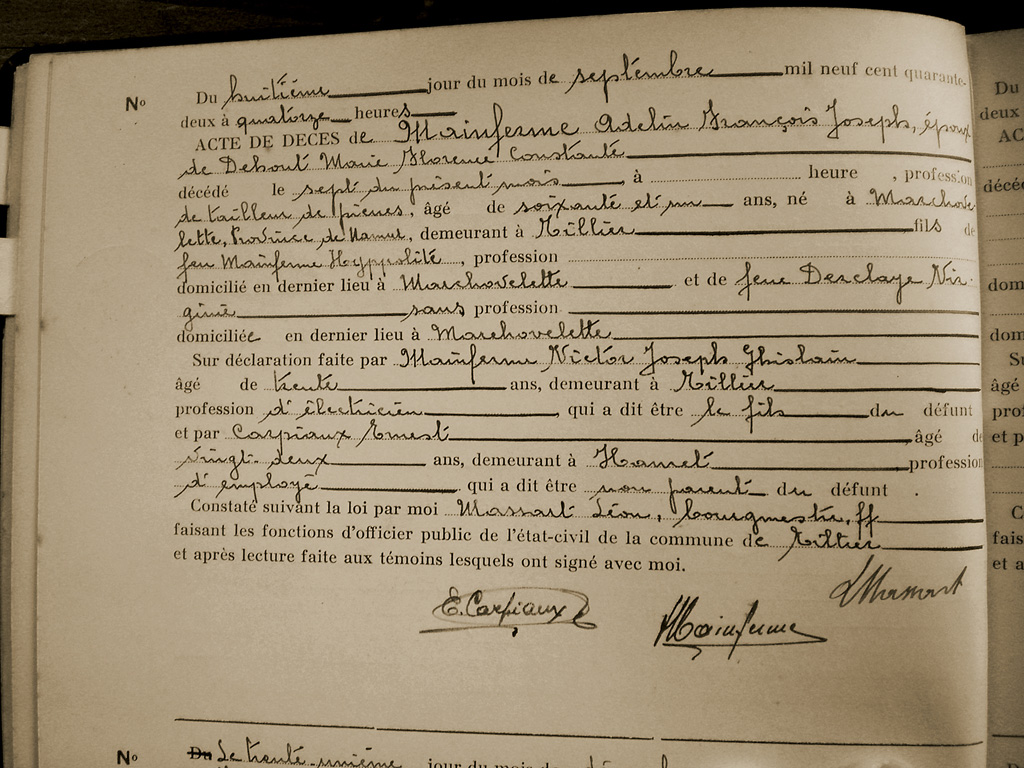 Nº Du huitième jour du mois de septembre mil neuf cent quarante-
deux à quatorze heures
ACTE DE DECES de Mainferme Adelin François Joseph, époux
de Debout Marie Florence Constante
décédé le sept du présent mois, à heure , profession
de tailleur de pierres, âgé de soixante et un ans, né à Marchove-
lette, Province de Namur, demeurant à Tillier fils de
feu Mainferme Hyppolite, profession
domicilié en dernier lieu à Marchovelette et de feue Desclaye Vir-
ginie sans profession
domiciliée en dernier lieu à Marchovelette
Sur déclaration faite par Mainferme Victor Joseph Ghislain
âgé de trente ans, demeurant à Tillier
profession d'électricien, qui a dit être le fils du défunt
et par Carpiaux Ernest âgé de
vingt-deux ans, demeurant à Hanret profession
d'employé qui a dit être non parent du défunt .
Constaté suivant la loi par moi Massart Léon, bourgmestre, ff
faisant les fonctions d'officier public de l'état-civil de la commune de Tillier
et après lecture faite aux témoins lesquels ont signé avec moi.
LMassart
E. Carpiaux
VMainferme
Nº Du Le trente-unième jour du mois de
Du
deux
AC
décéd
dom
dom
Su
âgé
prof
et p
C
fais
et a